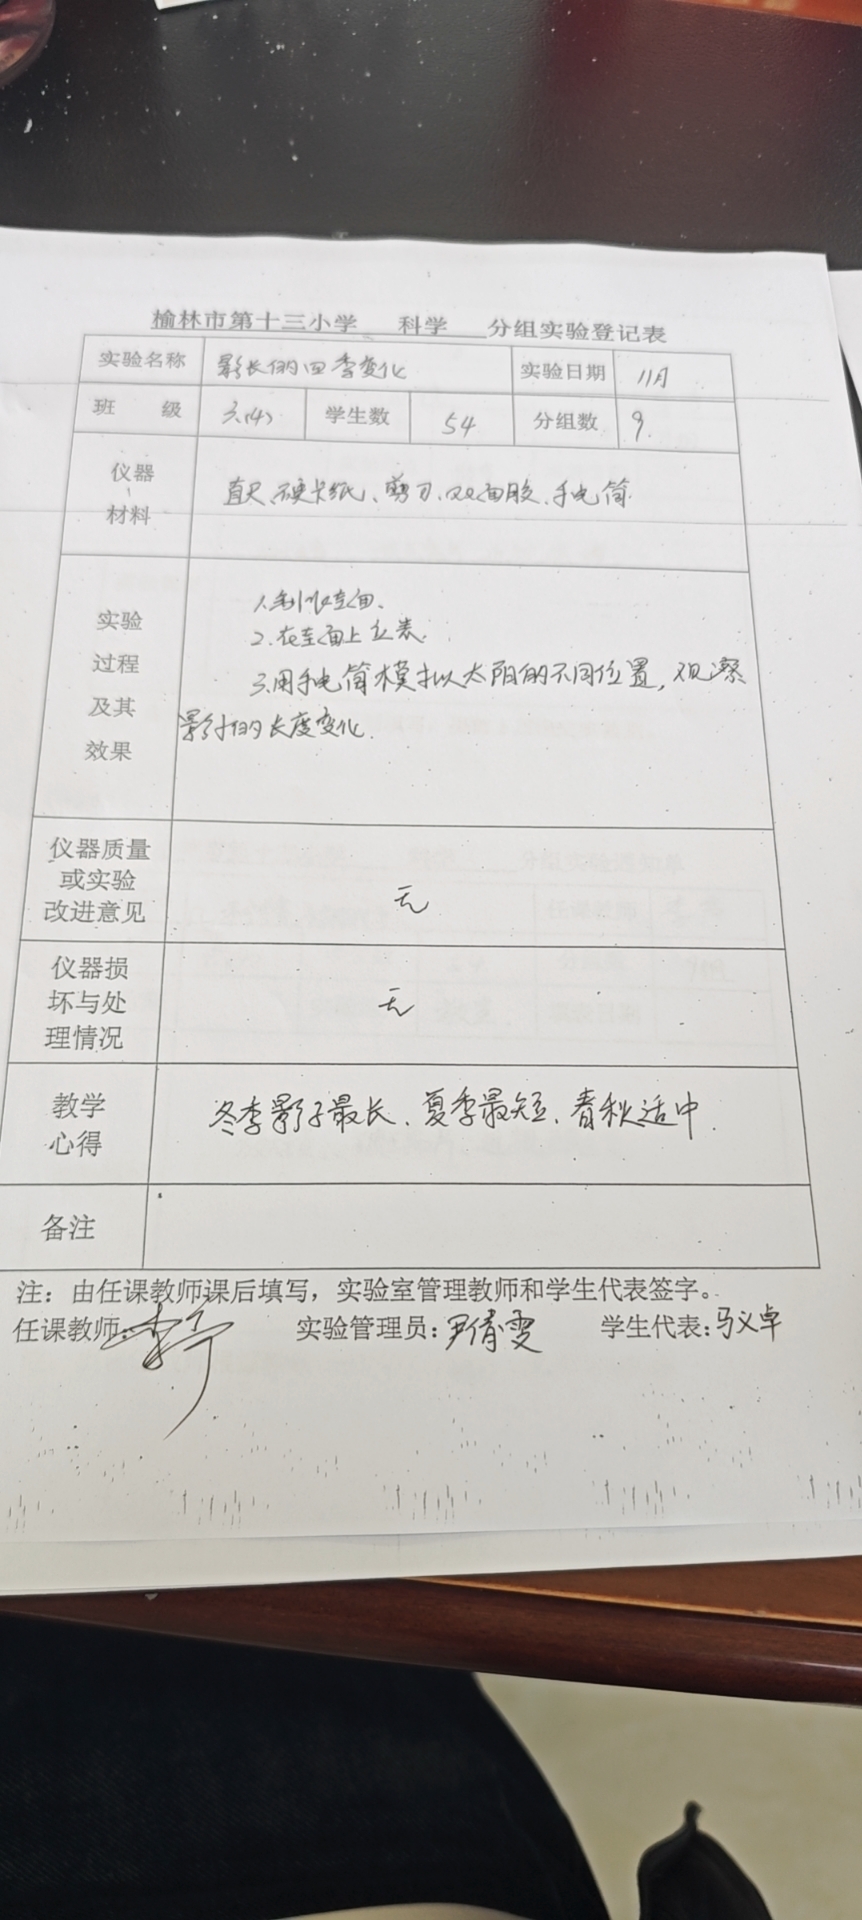 榆林市第十三小学 科学 分组实验登记表
实验名称 影长的四季变化 实验日期 11月
班 级 三(4) 学生数 54 分组数 9.
仪器
材料
直尺、硬卡纸、剪刀、双面胶、手电筒.
实验
过程
及其
效果
1.制作圭面.
2.在圭面上立表.
3.用手电筒模拟太阳的不同位置,观察
影子的长度变化.
仪器质量
或实验
改进意见
无
仪器损
坏与处
理情况
无
教学
心得
冬季影子最长、夏季最短、春秋适中.
备注
注:由任课教师课后填写,实验室管理教师和学生代表签字。
任课教师: 实验管理员:尹倩雯 学生代表:马义卓